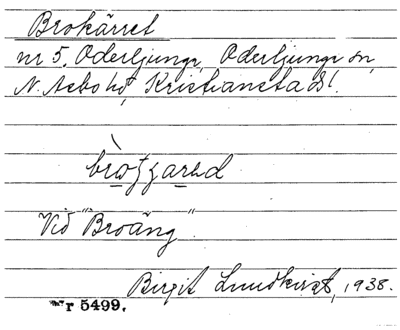 Brokärret
nr 5, Oderljunga, Oderljunga sn,
N. Åsbo hd, Kristianstads l.
Vid "Broäng"
Birgit Lundkvist, 1938.
r 5499.